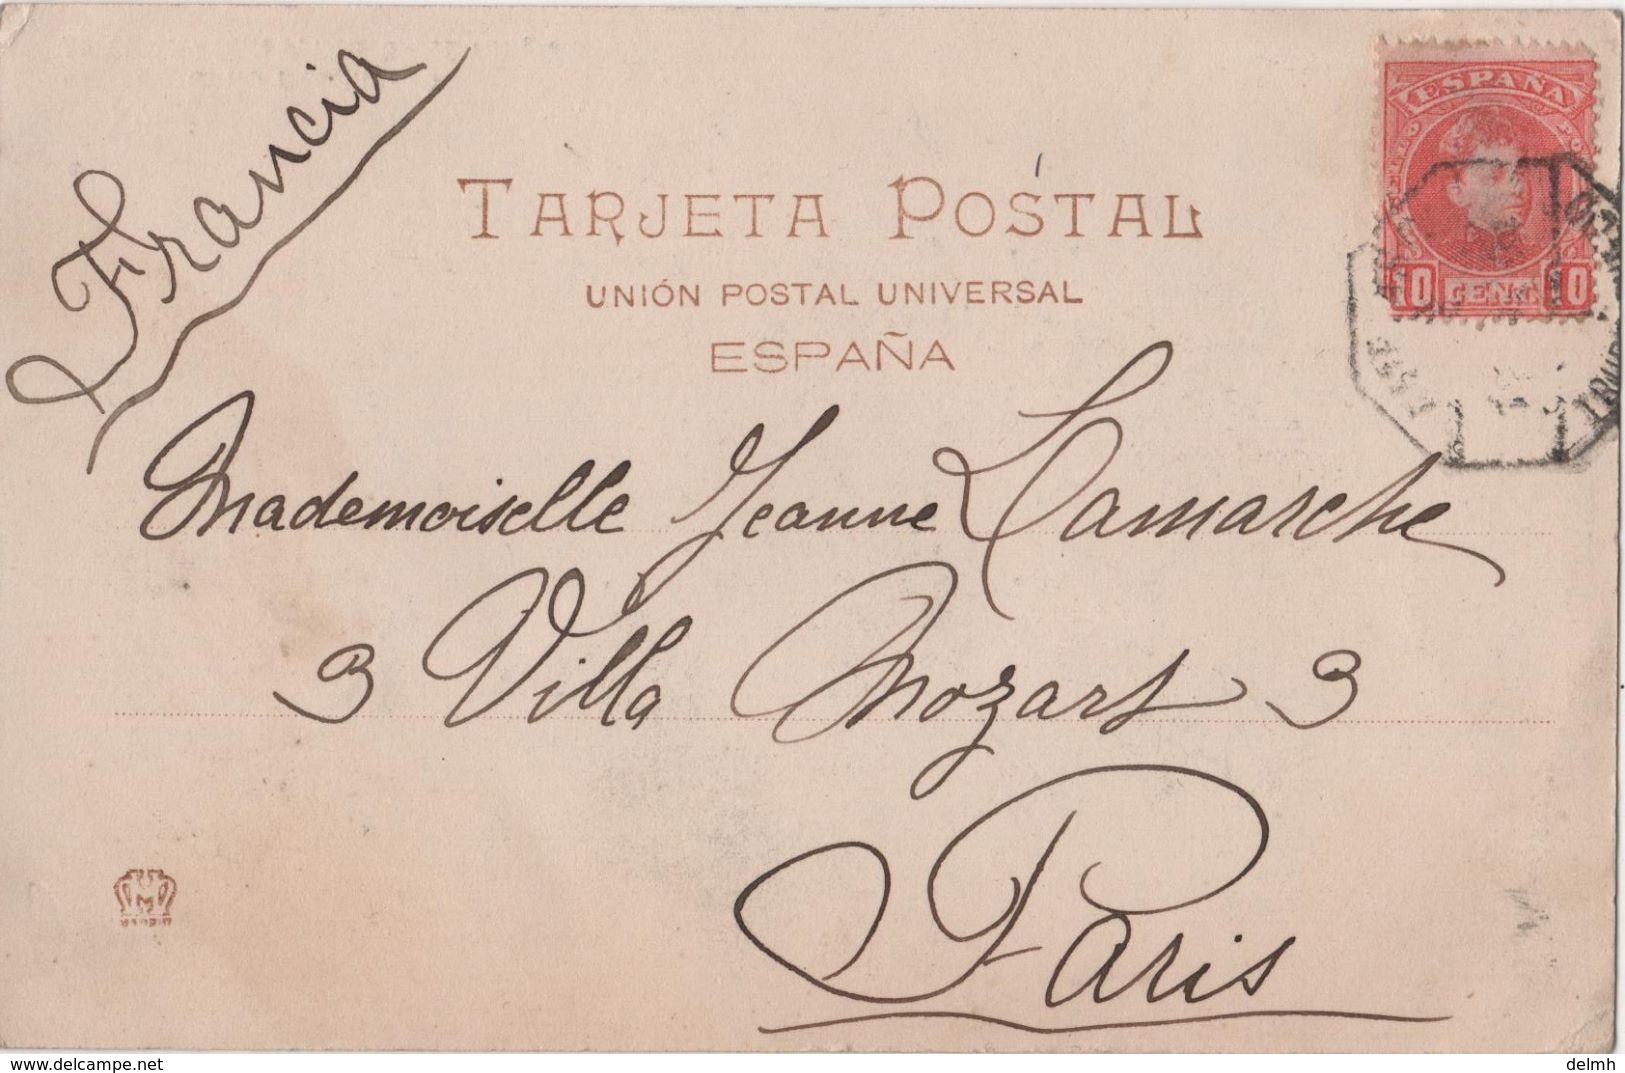 Francia
TARJETA POSTAL
UNIÓN POSTAL UNIVERSAL
ESPAÑA
ESPAÑA
10 CENT 10
IRUN
Mademoiselle Jeanne Lamarche
3 Villa Mozart 3
Paris
M
MADRID
delmh